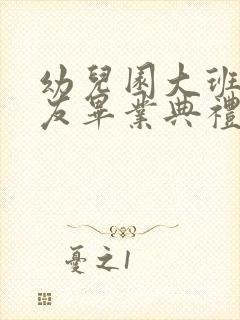 幼兒園大班
友畢業典禮
憂之1